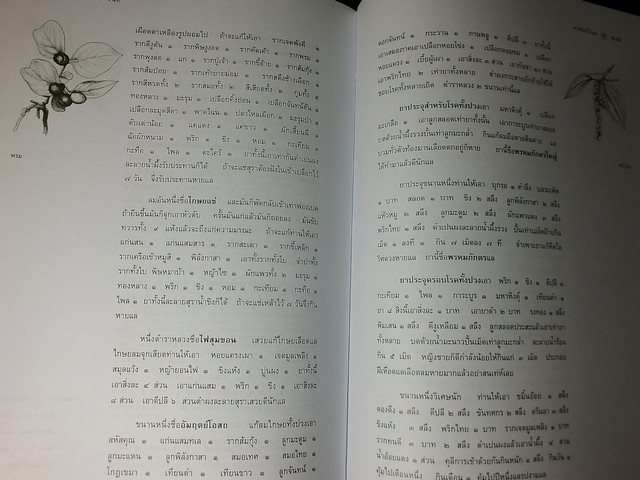 เผือดตาเหลืองรูปผอมไป ถ้าจะแก้ให้เอา รากเจตพังคี ๑
รากตีงตัน ๑ รากพิษงูงอด ๑ รากคัดเค้า ๑ รากพรม
รากพุงดอ ๑ แก ๑ รากปูเจ้า ๑ รากขี้อ้าย ๑ รากส้มกุ้ง
รากส้มป่อย ๑ รากเท้ายายม่อม ๑
รากสีหวดทั้ง ๒ รากสมอทั้ง ๒ สีเสียดทั้ง ๒ กุ่มทั้ง
ทองหลาง ๑ มะรุม ๑ เปลือกทิ้งถ่อน ๑ เปลือกจันทน์ดิน ๑
เปลือกละมุดสีดา ๑ พาดไฉน ๑ ปลาไหลเผือก ๑ มะรุมป่า
ตับเต่าน้อย ๑ แคแตง ๑ แคขาว ๑ ผักเสี้ยนผี
ฉ้อผักหนาม ๑ พริก ๑ ขิง ๑ หอม ๑ กะเทียม ๑
กะทือ ๑ ไพล ๑ ตะไคร้ ๑ ยาทั้งนี้เอาเท่ากันตำเป็นผง
ละลายน้ำผึ้งรับประทานก็ได้ ถ้าจะแช่สุราต้องฝังในเข้าเปลือกไว้
๗ วัน จึงรับประทานหายแล
ลมอันหนึ่งชื่อโกษยแช่ และมันก็พัดกลับเข้าเท่าฟองเปด
ถ้ายืนขึ้นมันก็จุกเอาหัวตับ ครั้นมันแก่แล้วมันก็ถอยลง มันขับ
ทวารทั้ง ๙ แห้งแล้วจะถึงแก่ความมรณะ ถ้าจะแก้ท่านให้เอา
แก่นสน ๑ แก่นแสมสาร ๑ รากสะเดา ๑ รากขี้เหล็ก ๑
รากเครือเข้าหมูสี ๑ พิลังกาสา ๑ เอาทั้งรากทั้งใบ จำปาทั้ง
รากทั้งใบ พิษหมาบ้า ๑ หญ้าไซ ๑ ผักแพวทั้ง ๒ มะรุม ๑
ทองหลาง ๑ พริก ๑ ขิง ๑ หอม ๑ กะเทียม ๑ กะทือ ๑
ไพล ๑ ยาทั้งนี้ละลายสุราน้ำขิงก็ได้ ถ้าจะแช่เหล้าไว้ ๗ วันจึงกิน
หายแล
หนึ่งตำราหลวงชื่อไฟสุมขอน เสวยแก้โกษยเลือดแล
โกษยลมจุกเสียดท่านให้เอา หอยแครงเผา ๑ เจตมูลเพลิง ๑
สมุลแว้ง ๑ หญ้ายองไฟ ๑ ขิงแห้ง ๑ ปูนผง ๑ ยาทั้งนี้
เอาสิ่งละ ๔ ส่วน เอาแก่นแสม ๑ พริก ๑ ขิง ๑ เอาสิ่งละ
๘ ส่วน เอาดีปลี ๖ ส่วนตำผงละลายสุราเสวยดีนักแล
ขนานหนึ่งชื่ออัมฤตย์โอสถ แก้ลมโกษยทั้งปวงเอา
สหัสคุณ ๑ แก่นแสมทเล ๑ รากส้มกุ้ง ๑ ลูกมะตูม ๑
ลูกมะแหน ๑ ลูกพิลังกาสา ๑ สมอเทศ ๑ สมอไทย ๑
โกฎเขมา ๑ เทียนดำ ๑ เทียนขาว ๑ ลูกจันทน์ ๑
พรม
ดอกจันทน์ ๑ กระวาน ๑ กานพลู ๑ ดีปลี ๑ ยานี้
เอาเสมอภาคเอาเปลือกหอยโข่ง ๑ เปลือกหอยขม ๑ เปลือก
หอยแครง ๑ เบี้ยผู้เผา ๑ เอาสิ่งละ ๓ ส่วน เอากัญชา ๑๐ ส่วน
เอาพริกไทย ๑ เท่ายาทั้งหลาย
ชอบโรคทั้งหลายเถิด ตำราหลวง ๒ ขนานเท่านี้แล
ยาประจุสำหรับโรคทั้งปวงเอา มหาหิงคุ์ ๑ เปลือก
มะเกลือ ๑ เอาลูกสลอดเท่ายาทั้งนั้น
บดด้วยน้ำผึ้งรวงปั้นเท่าลูกมะกล่ำ
บวมทั่วตัวท้องมานเลือดตกอยู่ก็หาย ยานี้ชื่อพรหมภักตรใหญ่
ได้ทำมาแล้วดีนักแล
ยาประจุขนานหนึ่งท่านให้เอา บุกรอ ๑ ตำลึง บอระเพ็ด
๑ บาท สลอด ๑ บาท ขิง ๒ สลึง ลูกพิลังกาสา ๒ สลึง
แห้วหมู ๒ สลึง ลูกมะตูม ๒ สลึง ผักแพวแดง ๑ สลึง
พริกไทย ๑ สลึง ตำเป็นผงละลายน้ำผึ้งรวง ปั้นเท่าเม็ดฝ้ายกิน
เม็ด ๑ ลงที ๑ กิน ๗ เม็ดลง ๗ ที จำเพาะยาแก้ริดไอ
ริศดวงหายแล ยานี้ชื่อพรหมภักตรแล
ยาประจุครอบโรคทั้งปวงเอา พริก ๑ ขิง ๑ ดีปลี ๑
กะเทียม ๑ ไพล ๑ การะบูร ๑ มหาหิงคุ์ ๑ เทียนดำ ๑
ยา ๘ สิ่งนี้เอาสิ่งละ ๑ บาท เอายาดำ ๒ บาท รงทอง ๑ สลึง
พิมเสน ๑ สลึง ดีงูเหลือม ๑ สลึง ลูกสลอดประสะแล้วเอาเท่ายา
ทั้งหลาย บดด้วยน้ำมะนาวปั้นเม็ดเท่าลูกมะกล่ำ ละลายน้ำร้อน
กิน ๕ เม็ด หญิงชายก็ดีกำลังน้อยให้กินแก่ ๓ เม็ด ประกอบ
ฝีเหือดแลเลือดลมหายมากแล้วอย่าสนเท่ห์เลย
ขนานหนึ่งวิเศษนัก ท่านให้เอา ขมิ้นอ้อย ๑ สลึง
ดองดึง ๑ สลึง ดีปลี ๒ สลึง ขันทศกร ๒ สลึง ตรีผลา ๑ สลึง
ขิงแห้ง ๓ สลึง พริกไทย ๑ บาท รากเจตมูลเพลิง ๑ บาท
รากทนดี ๓ บาท ๒ สลึง ตำเป็นผงแล้วเอาน้ำผึ้ง ๔ ส่วน
น้ำอ้อยแดง ๑ ส่วน คุลีการเข้าด้วยกันกินหนัก ๑ สลึง กินวัน ๑
คุ้มไปเดือนหนึ่ง กินเดือน ๑ คุ้มไปปีหนึ่งแลรูปงามแล